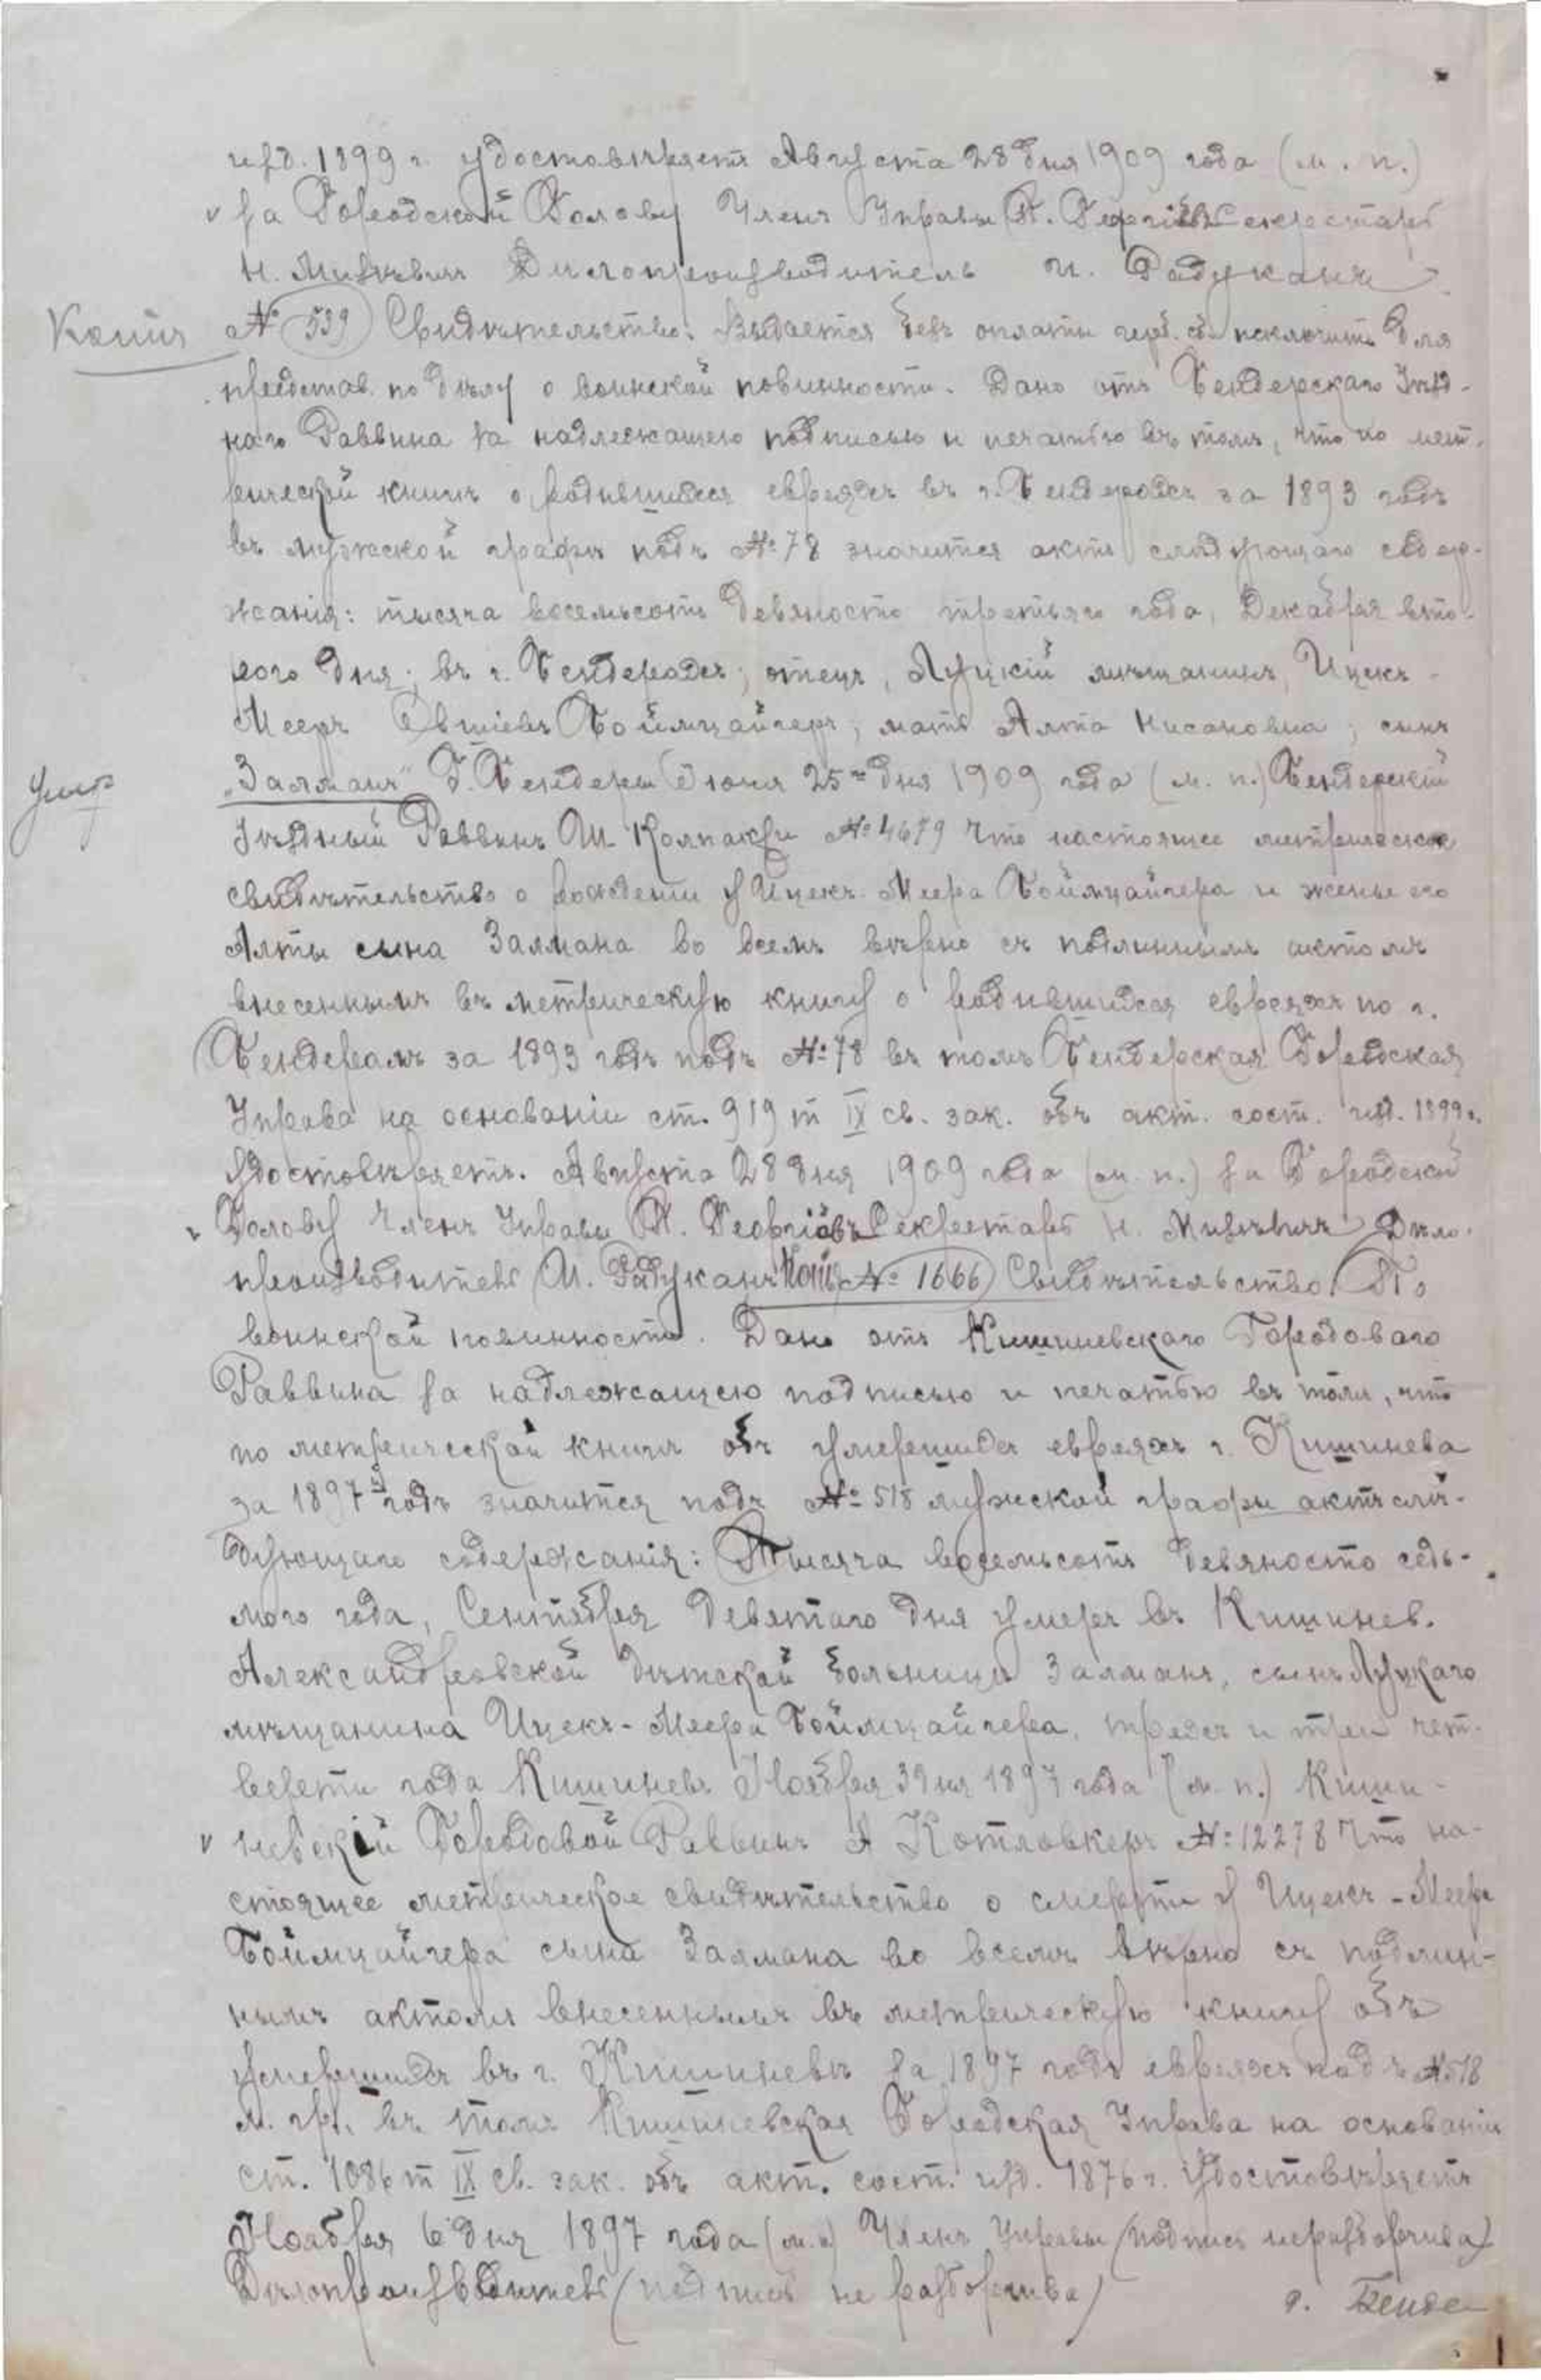 изд. 1899 г. удостовѣряетъ Августа 28 дня 1909 года (м. п.)
за Городской Голову Членъ Управы П. Георгіевъ Секретарь
Н. Мизкевичъ Дѣлопроизводитель И. Радуканъ
Копія № 539 Свидѣтельство. Выдается безъ оплаты герб. сб. исключит. для
представ. по дѣлу о воинской повинности. Дано отъ Бендерскаго Уѣзд-
наго Раввина за надлежащею подписью и печатью въ томъ, что по мет-
рической книгѣ о родившихся евреяхъ въ г. Бендерахъ за 1893 годъ
въ мужской графѣ подъ № 78 значится актъ слѣдующаго содер-
жанія: тысяча восемьсотъ девяносто третьяго года, Декабря вто-
рого дня; въ г. Бендерахъ; отецъ, Луцкій мѣщанинъ, Ицекъ-
Мееръ Овшіевъ Боймцайгеръ; мать Алта Нисановна; сынъ
Умер „Залманъ" Г. Бендеры Іюня 25 дня 1909 года (м. п.) Бендерскій
Уѣздный Раввинъ Ш. Колпакчи № 4679 Что настоящее метрическое
свидѣтельство о рожденіи у Ицекъ-Меера Боймцайгера и жены его
Алты сына Залмана во всемъ вѣрно съ подлиннымъ актомъ
внесеннымъ въ метрическую книгу о родившихся евреяхъ по г.
Бендерамъ за 1893 годъ подъ № 78 въ томъ Бендерская Городская
Управа на основаніи ст. 919 т IX св. зак. объ акт. сост. изд. 1899 г.
удостовѣряетъ. Августа 28 дня 1909 года (м. п.) за Городской
Голову Членъ Управы П. Георгіевъ Секретарь Н. Мизкевичъ Дѣло-
производитель И. Радуканъ Копія № 1666 Свидѣтельство По
воинской повинности. Дано отъ Кишиневскаго Городоваго
Раввина за надлежащею подписью и печатью въ томъ, что
по метрической книгѣ объ умершихъ евреяхъ г. Кишинева
за 1897 годъ значится подъ № 518 мужской графы актъ слѣ-
дующаго содержанія: Тысяча восемьсотъ девяносто седь-
мого года, Сентября девятаго дня умеръ въ Кишинев.
Александровской дѣтской больницѣ Залманъ, сынъ Луцкаго
мѣщанина Ицекъ-Меера Боймцайгера, трехъ и три чет-
верти года Кишиневъ Ноября 3 дня 1897 года (м. п.) Киши-
невскій Городовой Раввинъ А Котловкеръ № 12278 Что на-
стоящее метрическое свидѣтельство о смерти у Ицекъ-Меера
Боймцайгера сына Залмана во всемъ вѣрно съ подлин-
нымъ актомъ внесеннымъ въ метрическую книгу объ
умершихъ въ г. Кишиневѣ за 1897 годъ евреяхъ подъ № 518
м. гр. въ томъ Кишиневская Городская Управа на основаніи
ст. 1086 т IX св. зак. объ акт. сост. изд. 1876 г. удостовѣряетъ
Ноября 6 дня 1897 года (м. п) Членъ Управы (подпись неразборчива)
Дѣлопроизводитель (подпись не разборчива)